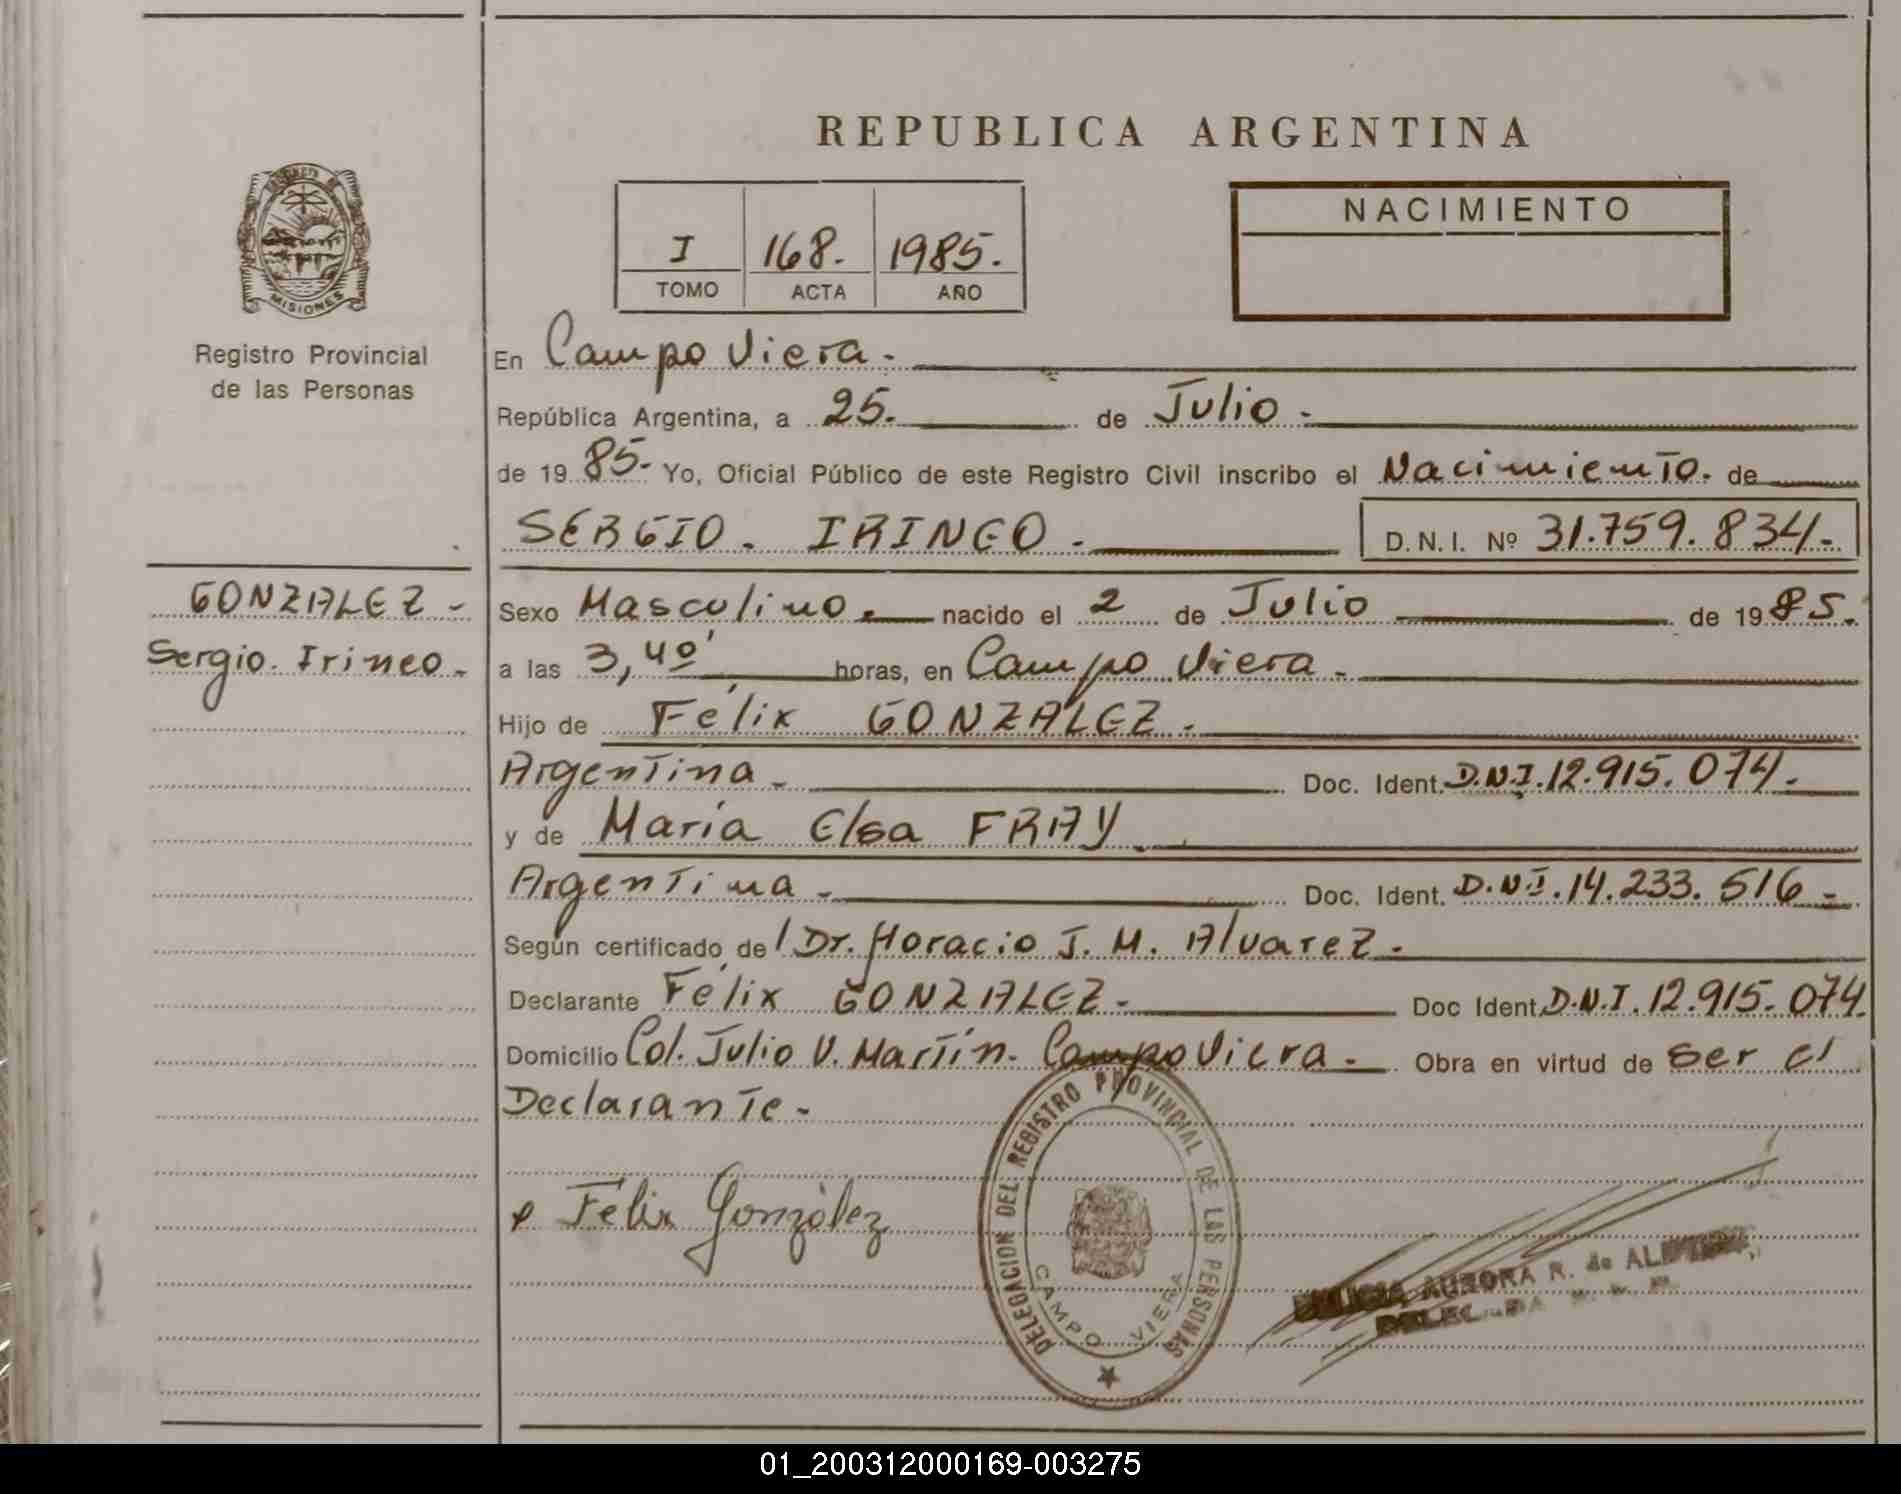 REPUBLICA ARGENTINA
MISIONES
Registro Provincial
de las Personas
I 168. 1985.
TOMO ACTA AÑO
NACIMIENTO
En Campo Viera.
República Argentina, a 25. de Julio.
de 1985. Yo, Oficial Público de este Registro Civil inscribo el Nacimiento. de
SERGIO. IRINEO. D.N.I. Nº 31.759.834.
GONZALEZ
Sergio. Irineo.
Sexo Masculino. nacido el 2 de Julio de 1985.
a las 3,40' horas, en Campo Viera.
Hijo de Félix GONZALEZ.
Argentina. Doc. Ident. D.N.I. 12.915.074.
y de María Elsa FRAY.
Argentina. Doc. Ident. D.N.I. 14.233.516
Según certificado de / Dr. Horacio J. M. Alvarez.
Declarante Félix GONZALEZ. Doc Ident. D.N.I. 12.915.074.
Domicilio Col. Julio U. Martín. Campo Viera. Obra en virtud de ser el
Declarante.
Felix González
DELEGACION DEL REGISTRO PROVINCIAL DE LAS PERSONAS
CAMPO VIERA
AURORA R. de
01_200312000169-003275